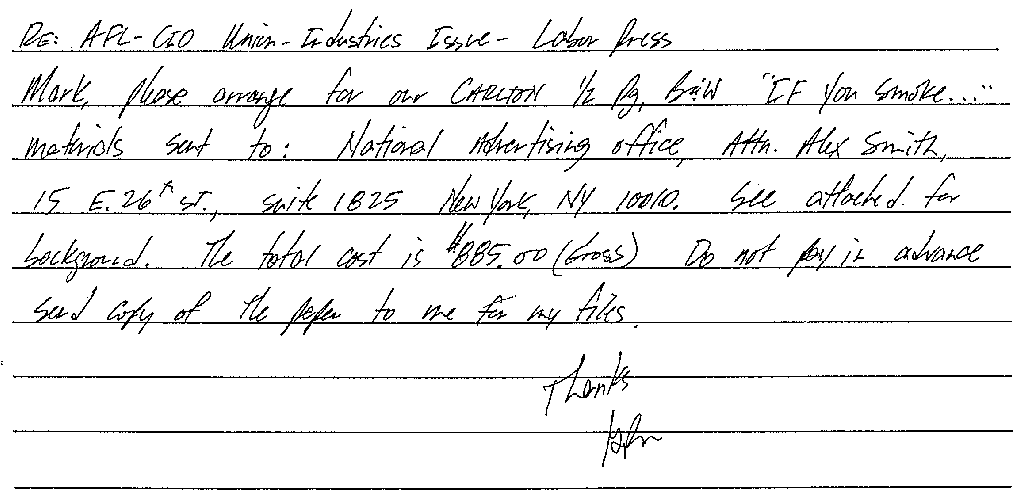 RE: AFL-CIO Union-Industries Issue - Labor Press
Mark, please arrange for our CARLTON 1/2 Pg, B&W "IF you smoke..."
materials sent to: National Advertising office, Attn. Alex Smith,
15 E. 26th ST., suite 1825 New York, NY 10010. See attached for
background. The total cost is $885.00 (Gross) Do not pay in advance
send copy of the paper to me for my files.
Thanks